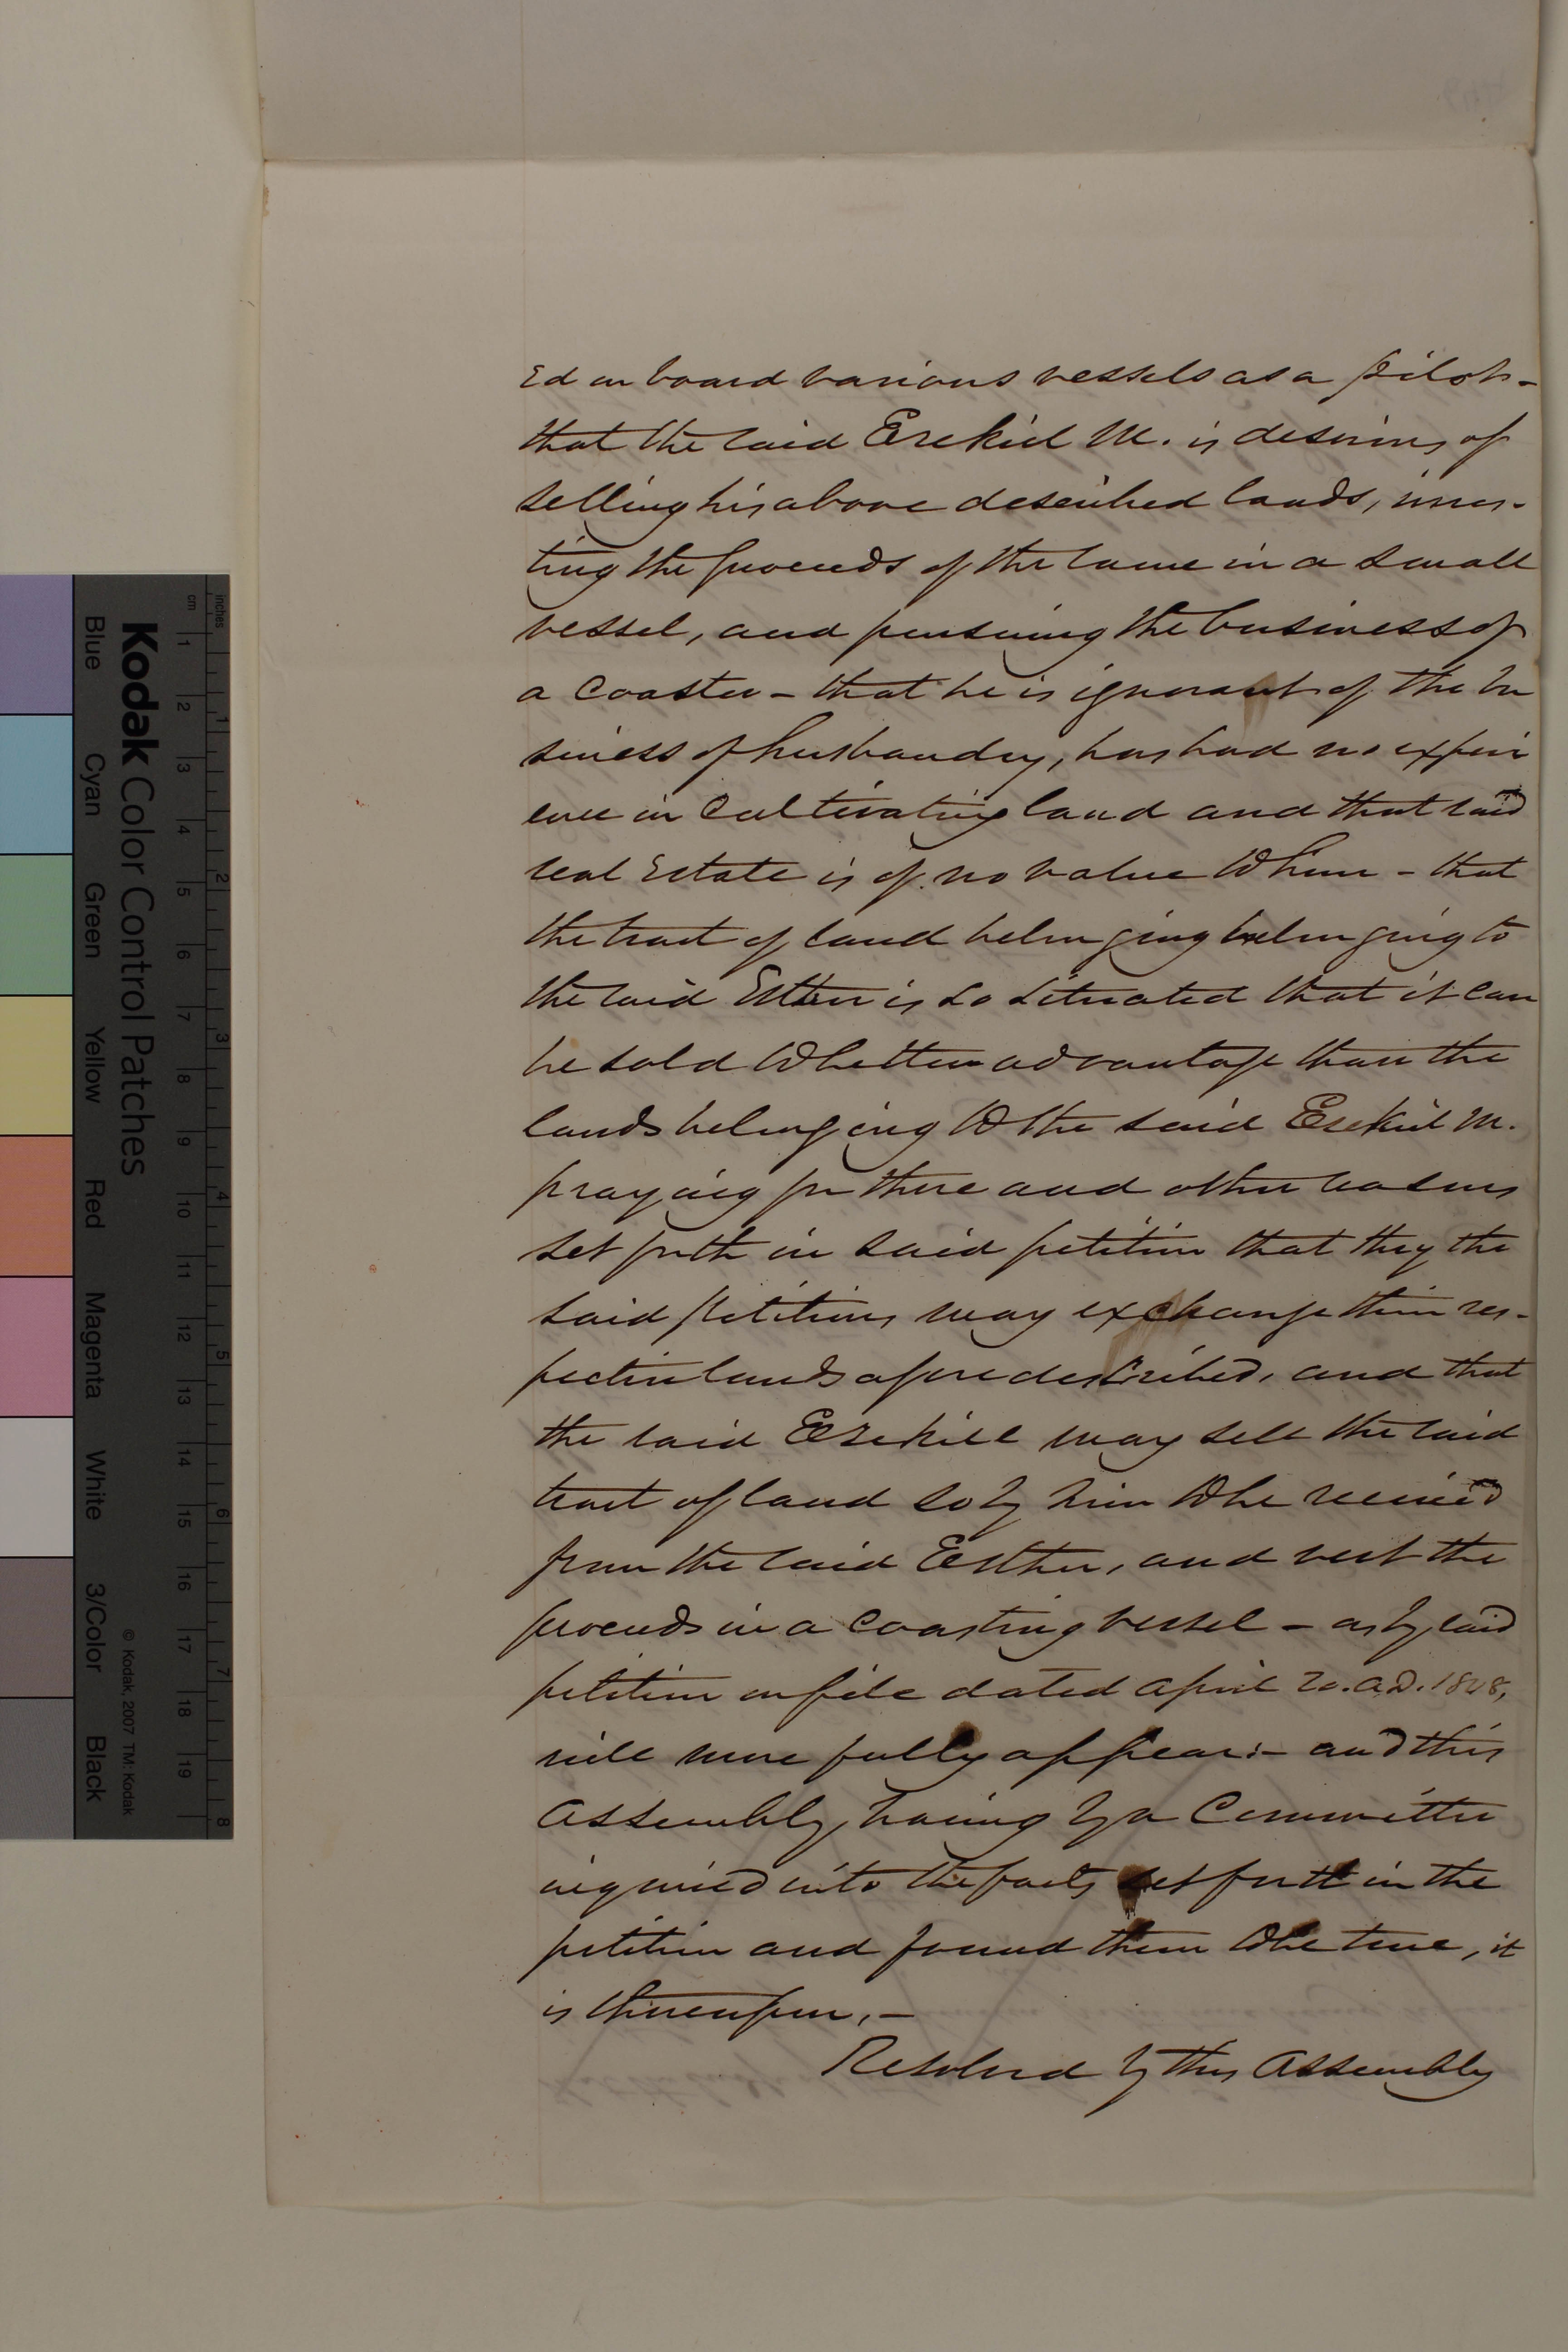 ed on board various vessels as a pilot -
that the said Ezekiel M. is desirous of
selling his above described lands, inves-
ting the proceeds of the same in a small
vessel, and pursuing the business of
a Coaster - that he is ignorant of the bu
siness of husbandry, has had no exper
ence in Cultivating land and that said
real Estate is of no value to him - that
the tract of land belonging belonging to
the said Esther is so situated that it can
be sold to better advantage than the
lands belonging to the said Ezekiel M.
praying for these and other reasons
set forth in said petition that they the
said petitioners may exchange their res-
pective lands afore described, and that
the said Ezekiel may sell the said
tract of land so by him to be received
from the said Esther, and vest the
proceeds in a Coasting vessel - as by said
petition on file dated April 20. A.D. 1848,
will more fully appear:- and this
Assembly, having by a Committee
inquired into the facts set forth in the
petition and found them to be true, it
is thereupon, -
Resolved by this Assembly
Kodak Color Control Patches
© Kodak, 2007 TM: Kodak
Blue Cyan Green Yellow Red Magenta White 3/Color Black
inches 1 2 3 4 5 6 7 8
cm 1 2 3 4 5 6 7 8 9 10 11 12 13 14 15 16 17 18 19